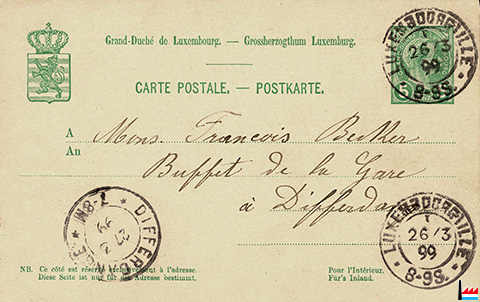 Grand-Duché de Luxembourg. — Grossherzogthum Luxemburg.
CARTE POSTALE. — POSTKARTE.
LUXEMBOURG-VILLE
26/3
99
8-9S.
5
A
An
Mons. Francois Becker
Buffet de la Gare
à Differdange
DIFFERDANGE
7-8M
27 3
99
LUXEMBOURG-VILLE
26/3
99
8-9S.
NB. Ce côté est réservé exclusivement à l'adresse.
Diese Seite ist nur für die Adresse bestimmt.
Pour l'Intérieur.
Für's Inland.